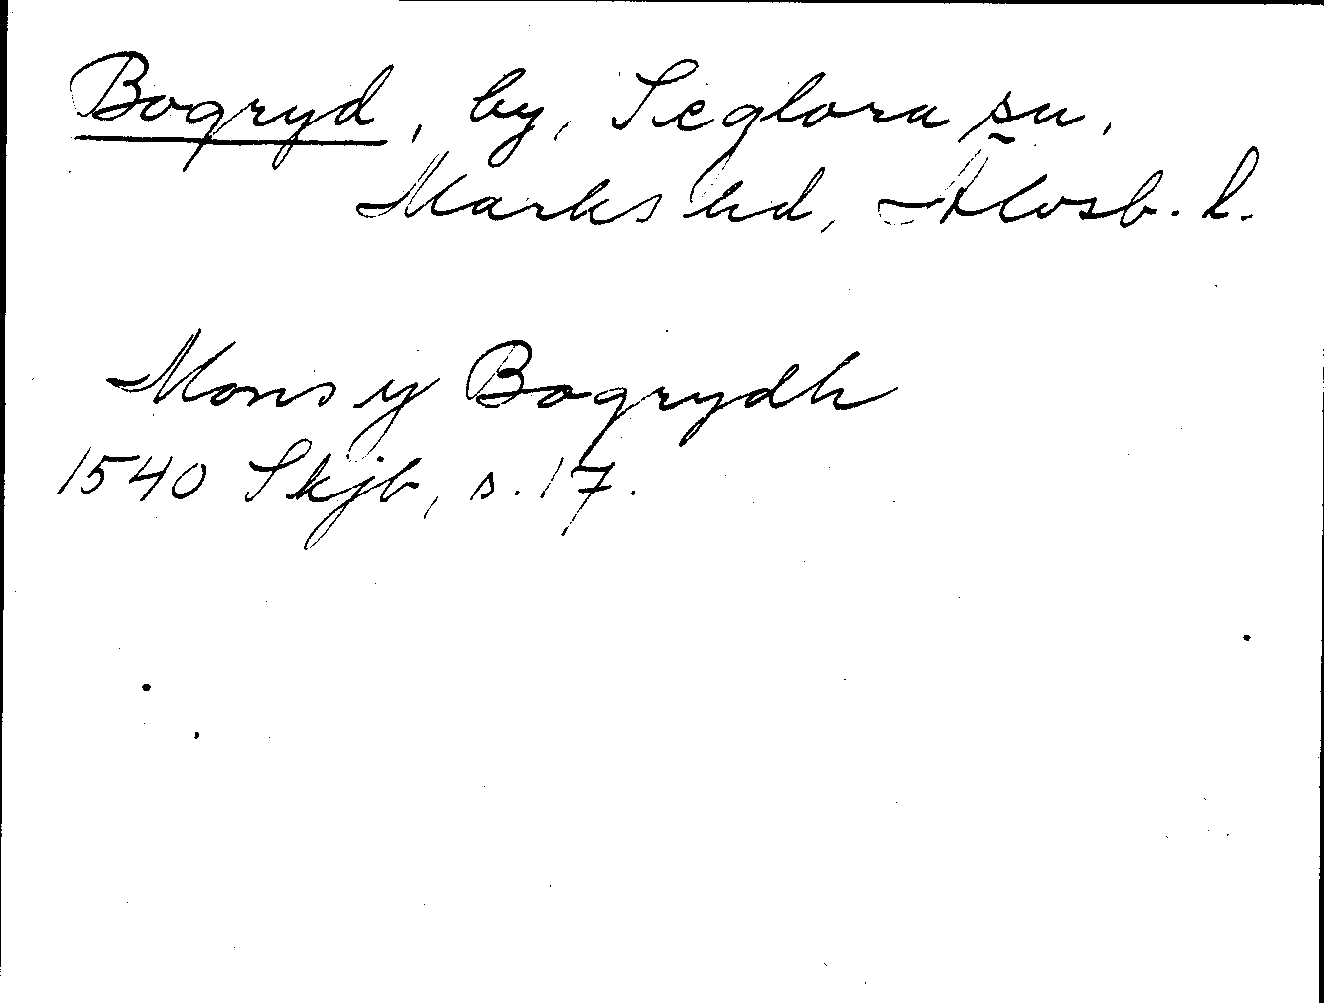 Bogryd, by, Seglora sn,
Marks hd, Älvsb. l.
Mons y Bogrydh
1540 Skjb, s. 17.